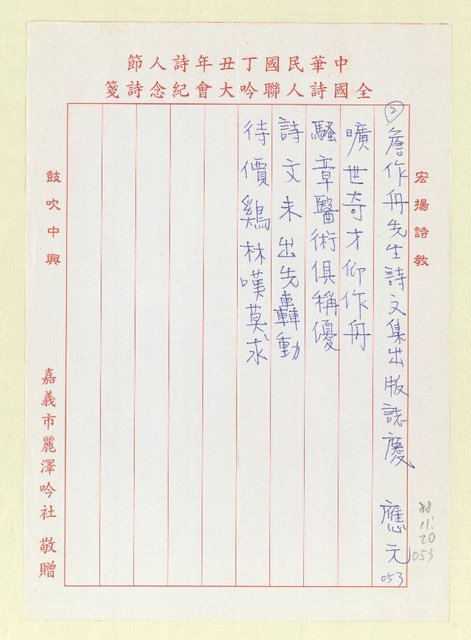 中華民國丁丑年詩人節
全國詩人聯吟大會紀念詩箋
宏揚詩教
② 詹作舟先生詩文集出版誌慶 應元 053
曠世奇才仰作舟
騷章醫術俱稱優
詩文未出先轟動
待價鷄林嘆莫求
88.
11.
20
053
鼓吹中興
嘉義市麗澤吟社 敬贈